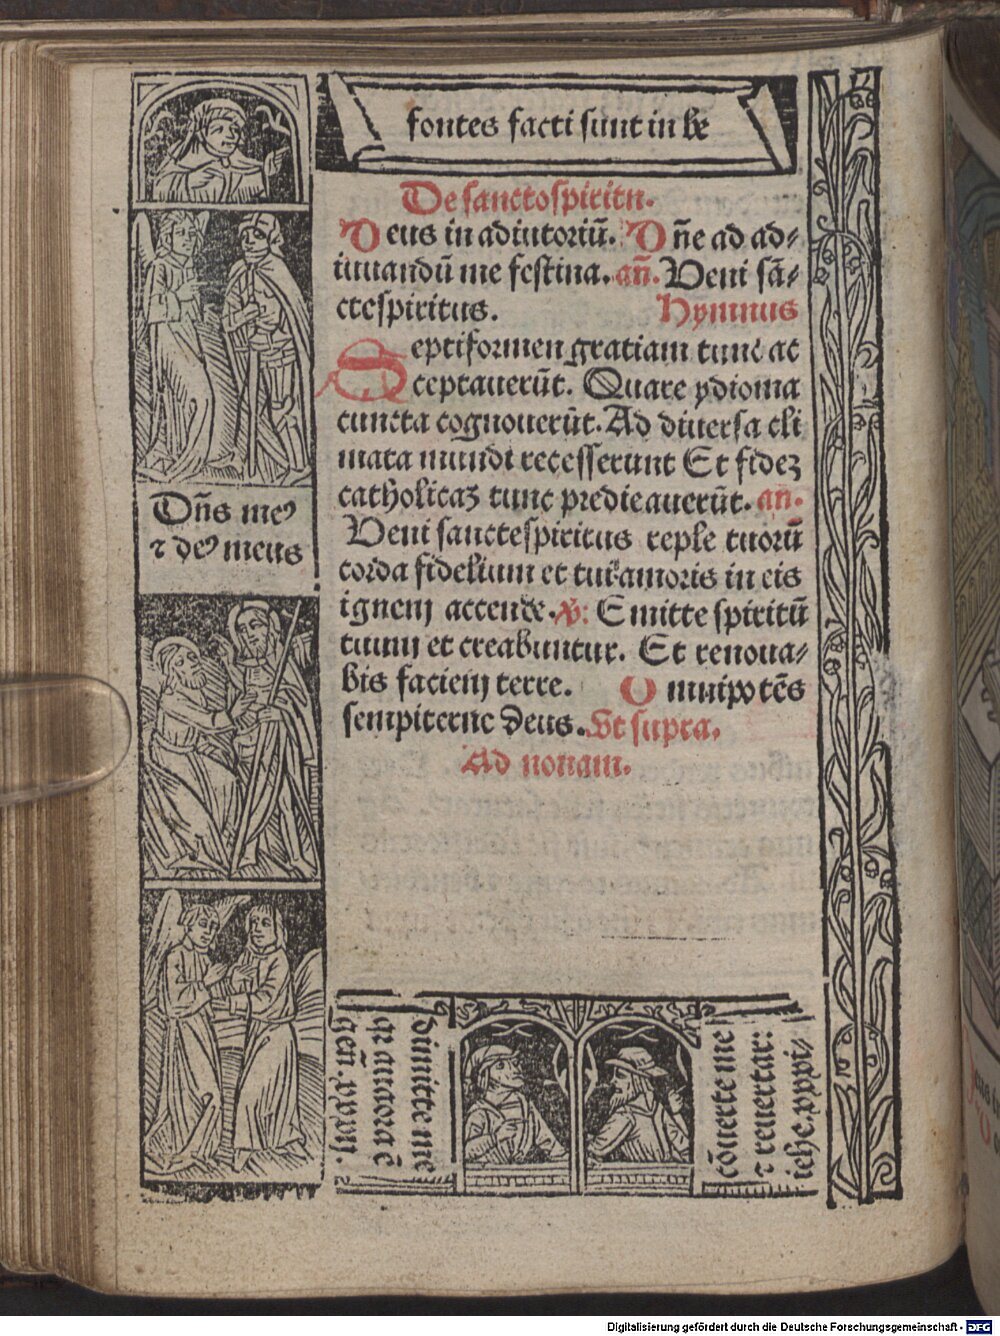 fontes facti sunt in be
De sanctospiritu.
Deus in adiutoriū. Dn̄e ad ad⸗
iuuandū me festina. an̄. Veni sā⸗
ctespiritus. Hymnus
Septiformen gratiam tunc ac
ceptauerūt. Quare ydioma
cuncta cognouerūt. Ad diuersa cli
mata mundi recesserunt Et fidez
catholicaz tunc predicauerūt. an̄.
Veni sanctespiritus reple tuorū
corda fidelium et tui amoris in eis
ignem accende. v̄: Emitte spiritū
tuum et creabuntur. Et renoua⸗
bis faciem terre. Omnipotēs
sempiterne deus. Ut supra.
Ad nonam.
Dn̄s meꝰ
⁊ deꝰ meus
dimitte me
qr̄ aurora ē
gen̄. xxxij.
cōuerte me
⁊ reuertar:
iehe. xxxi⸗
Digitalisierung gefördert durch die Deutsche Forschungsgemeinschaft - DFG